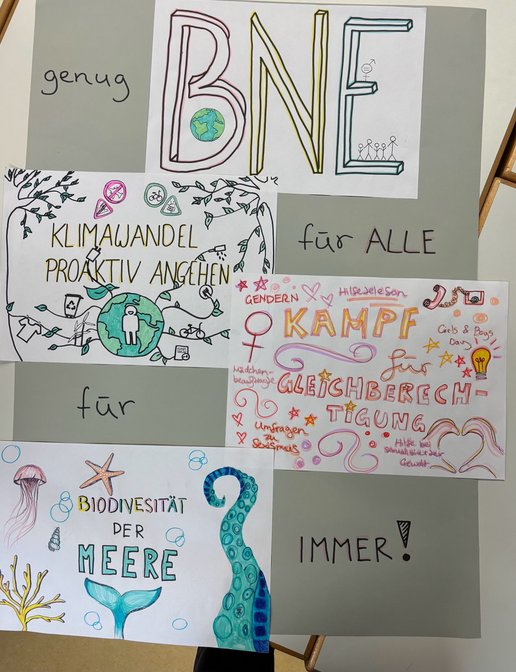 genug
BNE
KLIMAWANDEL
PROAKTIV ANGEHEN
für ALLE
GENDERN
Hilfetelefon
KAMPF
für
Girls & Boys
Day
Mädchen-
beauftragte
GLEICHBERECH-
TIGUNG
Umfragen
zu
Sexismus
Hilfe bei
sexualisierter
Gewalt
für
BIODIVESITÄT
DER
MEERE
IMMER!